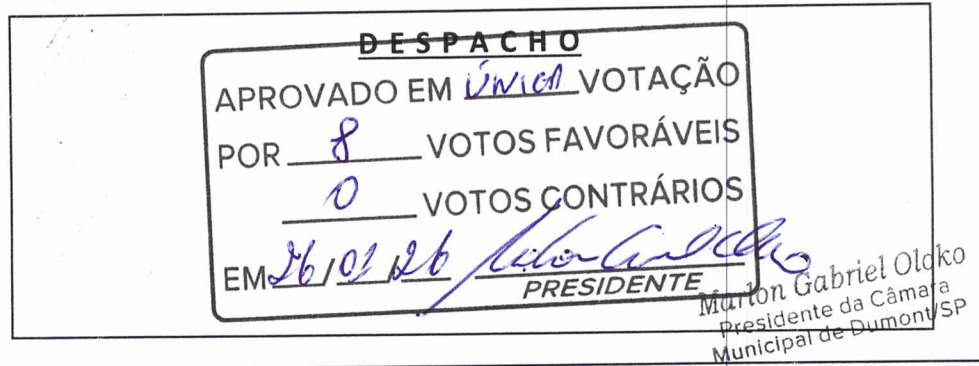 DESPACHO
APROVADO EM ÚNICA VOTAÇÃO
POR 8 VOTOS FAVORÁVEIS
0 VOTOS CONTRÁRIOS
EM 26/01/26
PRESIDENTE
Marlon Gabriel Oloko
Presidente da Câmara
Municipal de Dumont/SP